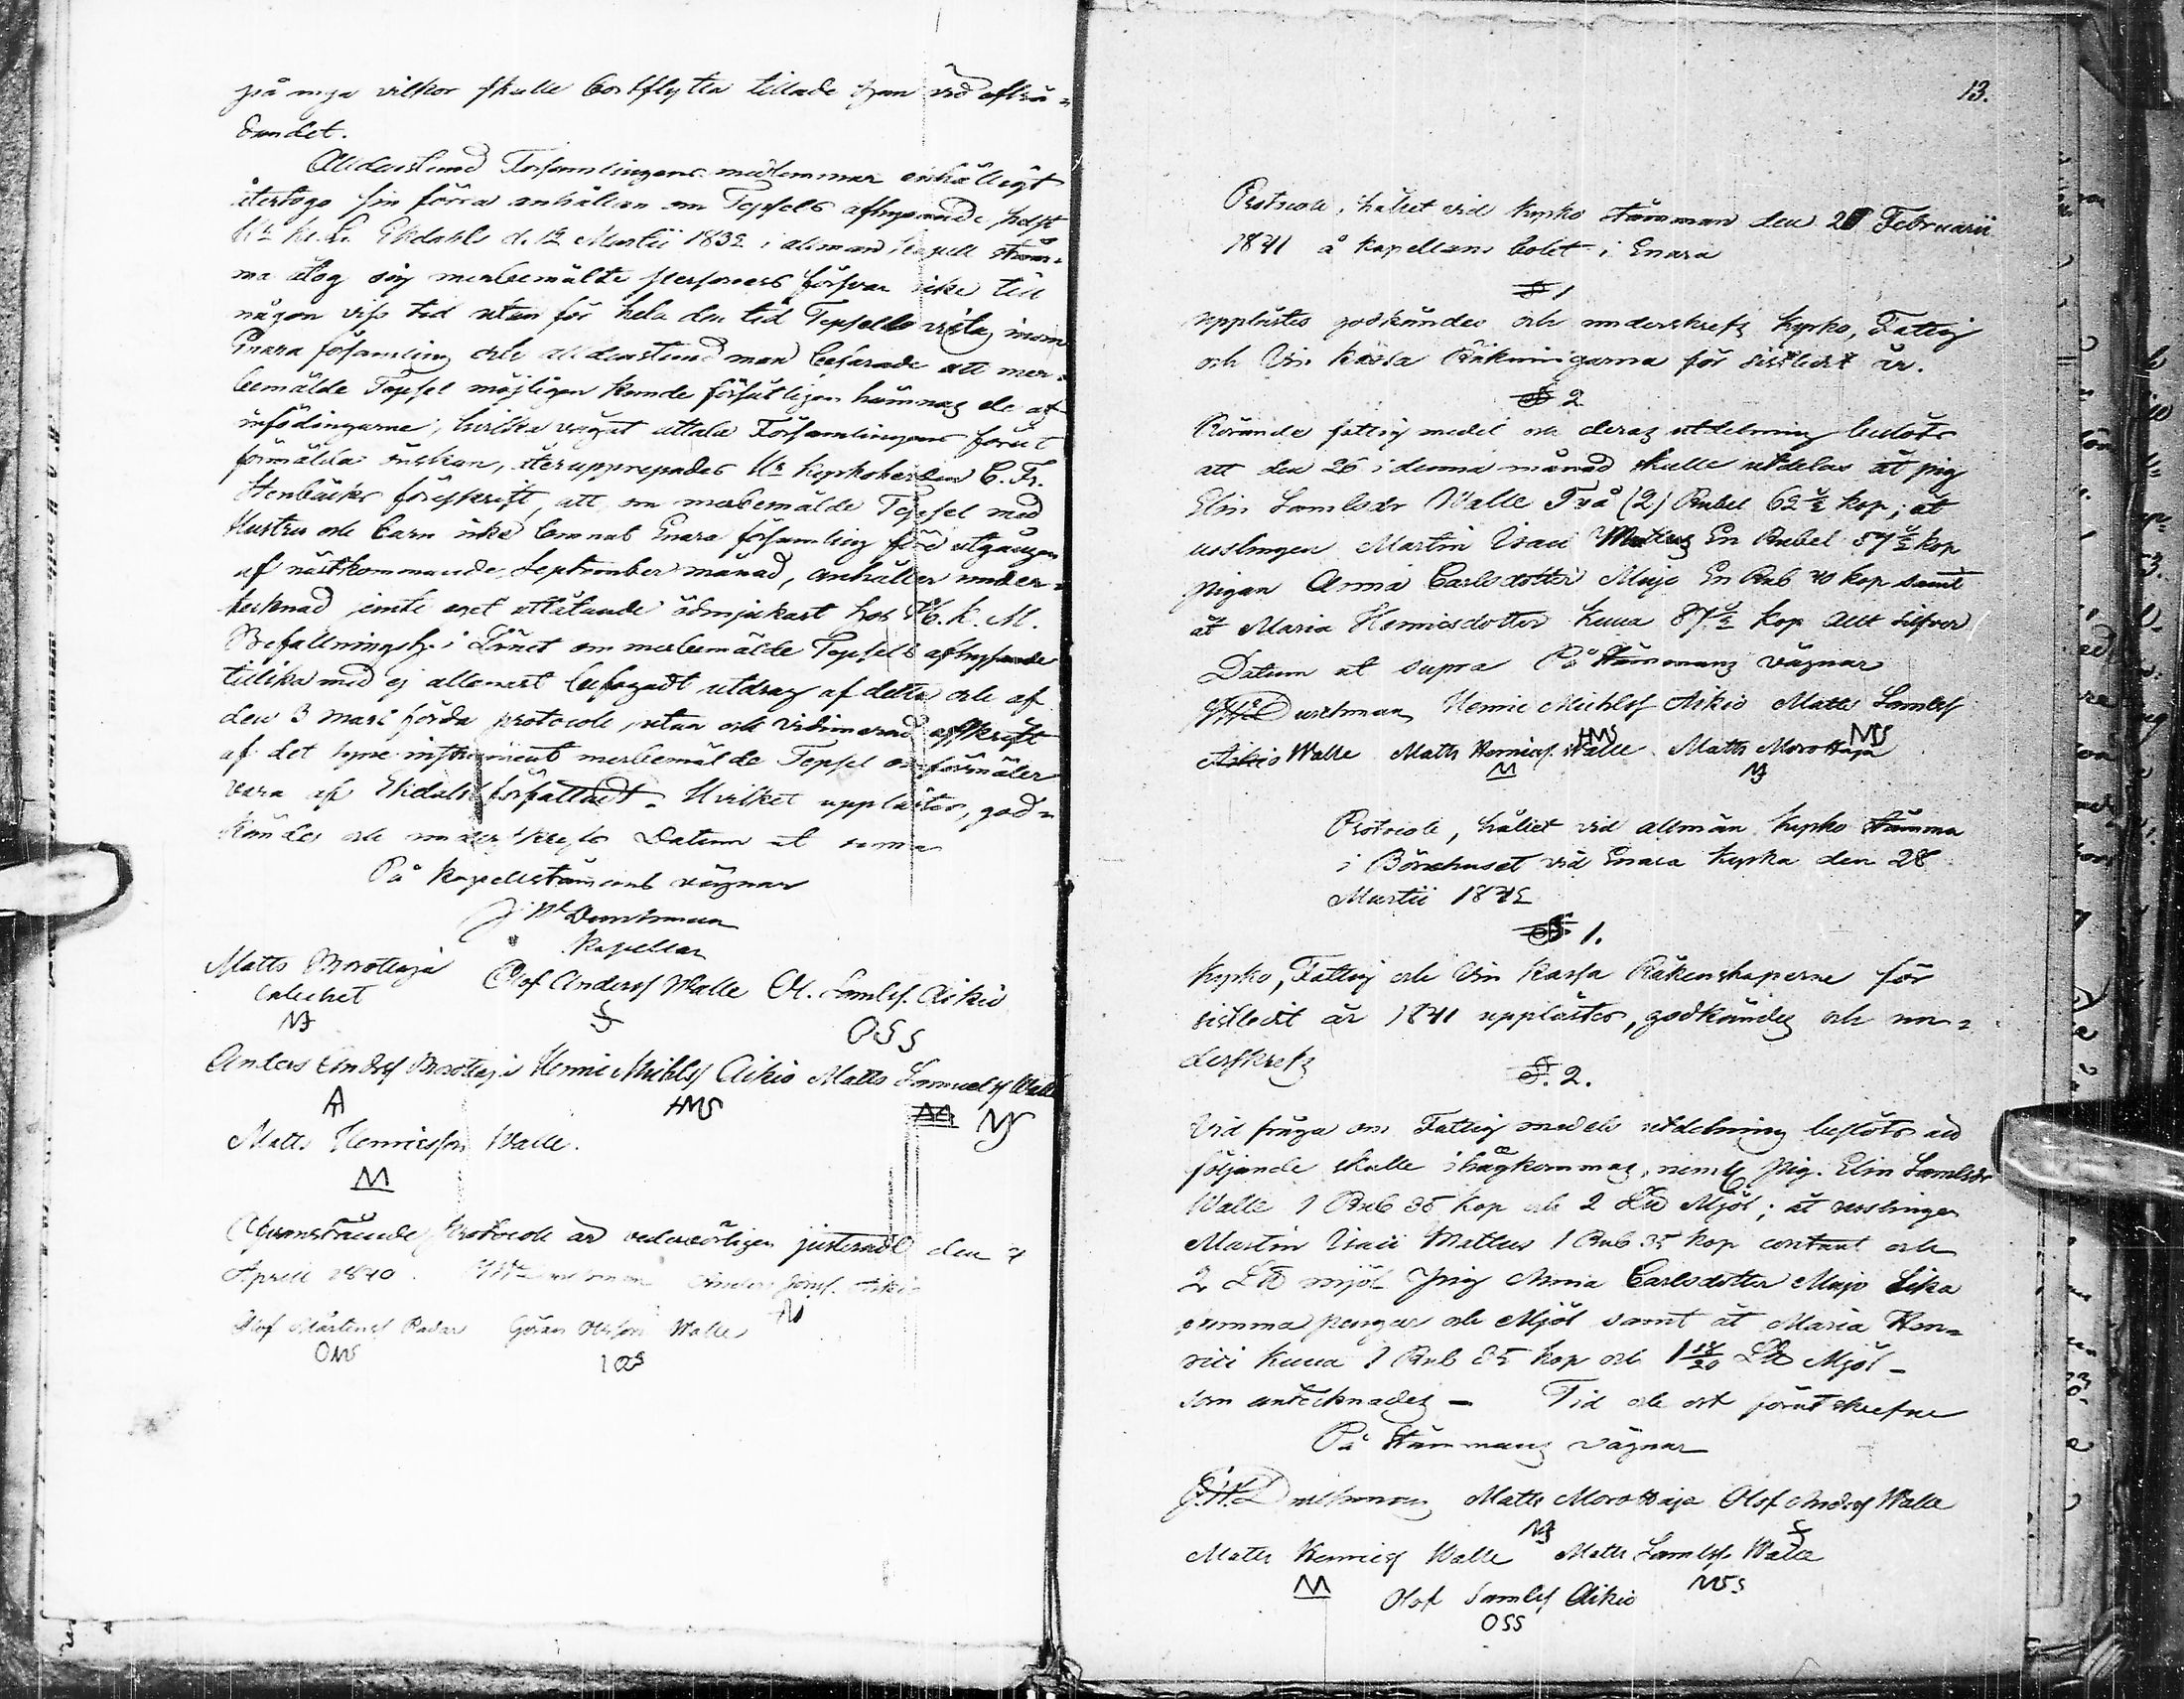 på nya vilkor skulle bortflytta tillade han vid afträ-
dandet.
Alldenstund Församlingens medlemmar enhälligt
återtogo sin förra anhållan om Topsels afhysande, helst
Ekdahl d. 12 Martii 1832 i allmän
ma åtog sig merbemälte persons försvar icke till
någon viss tid utan för hela den tid Topsell vistas inom
Enara församling och alldenstund man befarade att mer-
bemälde Topsel möjligen kunde försåtligen hämnas de af
infödingarne, hvilka vågat uttala Församlingens förut
förmälda önskan, återupprepades Hr Kyrkoherden C. Fr.
Stenbäcks föreskrift, att, om merbemälde Topsel med
Hustru och barn icke lemnat Enara församling före utgången
af nästkommande September månad, anhåller under-
tecknad jemte eget utlåtande ödmjukast hos H. K. M.
Befallningsh. i Länet om merbemälde Topsels afhysande
tillika med ej allenast befogadt utdrag af detta och af
den 3 Mars förda protocoll, utan och vidimerad afskrift
af det syne instrument merbemälde Topsel förmäler
vara af Ekdahl författadt. Hvilket upplästes, god-
kändes och underskrefs Datum ut supra
På kapellstämmans vägnar
J W Durchman
Kapellan
Matts Morottaja Olof Anderss Walle Ol. Samls. Aikio
Catechet
OSS
Anders Anders Morottaja Henric Michlss Aikio Matts Samuelss Walle
A HMS
Matts Henricsson Walle.
M
Ofvanstående Protocoll är vederbörligen justeradt den
April 1840. Durchman Anders Aikio
Olof Mårtenss Padar Göran Olsson Walle
OMS IOS
13.
Protocoll, hållet vid kyrko stämman den Februarii
1841 å kapellans bolet i Enara
§ 1
upplästes godkändes och underskrefs Kyrko, Fattig
och Vin kassa Räkningarna för sistledit år.
§ 2
Rörande fattig medel och deras utdelning beslöts
att den 26 i denna månad skulle utdelas åt pig
Elin Samlsdr Walle Två (2) Rubel 62 ½ kop; åt
usslingen Martin Isaci Mattus En Rubel 57 ½ kop
pigan Anna Carlsdotter Mujo En Rub 70 kop samt
åt Maria Henricsdotter Kuua 87 ½ kop allt silfver
Datum ut supra På Stämmans vägnar
JWDurchman Henric Michlss Aikio Matts Samlss
Aikio Walle Matts Henricss Walle Matts Morottaja
HMS MS
M
Protocoll, hållet vid allmän kyrko stämma
i Bönehuset vid Enara kyrka den 28
Martii 1842
§ 1.
Kyrko, Fattig och Vin kassa Räkenskaperne för
sistledit år 1841 upplästes, godkändes och un-
derskrefs
§. 2.
Vid fråga om Fattig medels utdelning beslöts att
följande skulle ihågkommas, neml. pig. Elin Samlsdr
Walle 1 Rub 35 kop och 2 L℔ Mjöl; åt usslingen
Martin Isaci Mattus 1 Rub 35 kop contant och
2 L℔ mjöl Pig Anna Carlsdotter Mujo lika
summa pengar och Mjöl samt åt Maria Hen-
rici Kuua 1 Rub 35 kop och L℔ Mjöl -
som antecknades - Tid och ort förut skrefne
På Stämmans vägnar
J.W.Durchman Matts Morottaja Olof Anders Walle
Matts Henricss Walle Matts Samlss. Walle
M MSS
Olof Samlss Aikio
OSS